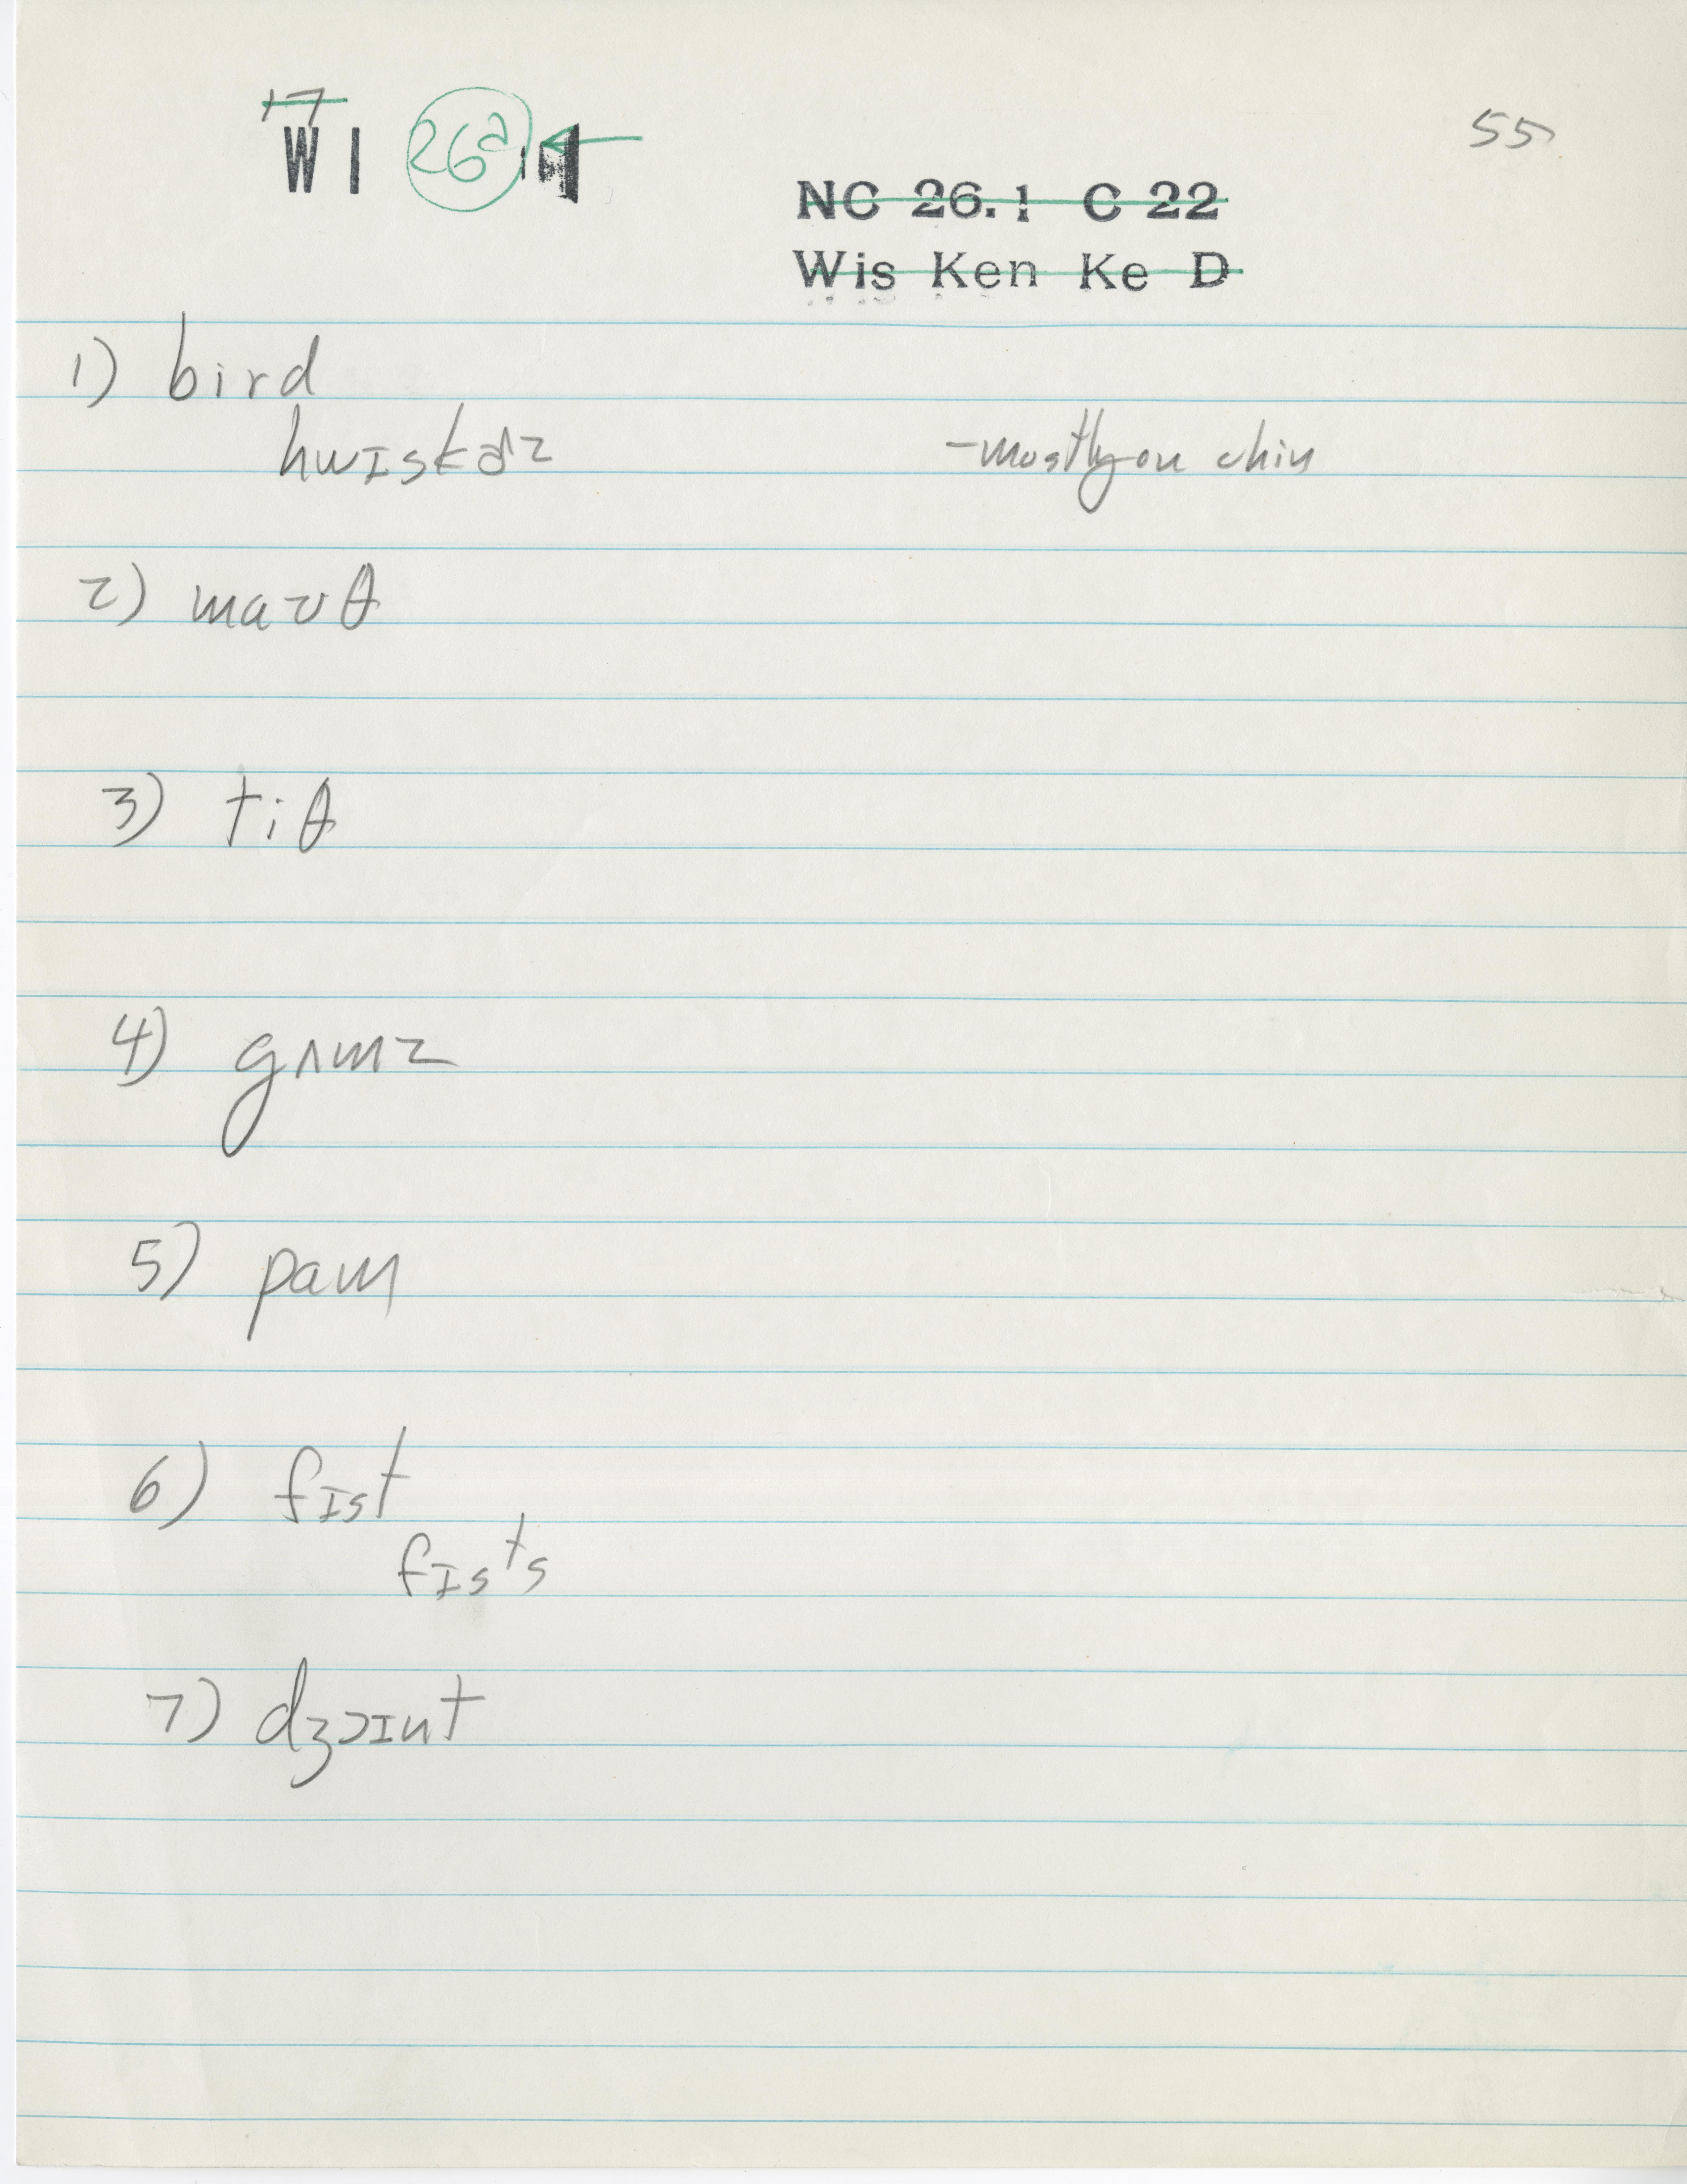 17
W I 26a
55
NC 26.1 C 22
Wis Ken Ke D
1) bird
hwɪskɚz -mostly on chin
2) maʊθ
3) tiθ
4) gʌmz
5) pam
6) fɪst
fɪsᵗs
7) dʒɔɪnt